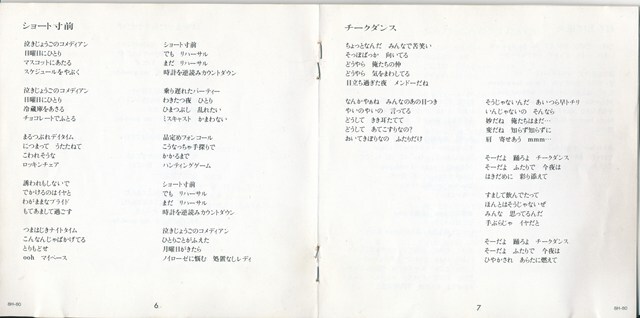 ショート寸前
泣きじょうごのコメディアン
日曜日にひとり
マスコットにあたる
スケジュールをやぶく
泣きじょうごのコメディアン
日曜日にひとり
冷蔵庫をあさる
チョコレートでふとる
まるつぶれデイタイム
につまって うたたねて
こわれそうな
ロッキンチェア
誘われもしないで
でかけるのはイヤと
わがままなプライド
もてあまして過ごす
つまはじきナイトタイム
こんなんじゃばかげてる
とりもどせ
ooh マイペース
ショート寸前
でも リハーサル
まだ リハーサル
時計を逆読みカウントダウン
乗り遅れたパーティー
わきたつ夜 ひとり
ひまつぶし 乱れたい
ミスキャスト かまわない
品定めフォンコール
こうなっちゃ手探りで
かかるまで
ハンティングゲーム
ショート寸前
でも リハーサル
まだ リハーサル
時計を逆読みカウントダウン
泣きじょうごのコメディアン
ひとりごとがふえた
月曜日がきたら
ノイローゼに悩む 処置なしレディ
6
8H-60
チークダンス
ちょっとなんだ みんなで苦笑い
そっぽばっか 向いてる
どうやら 俺たちの仲
どうやら 気をまわしてる
目立ち過ぎた夜 メンドーだね
なんかやぁね みんなのあの目つき
やいのやいの 言ってる
どうして きき耳たてて
どうして あてこすりなの?
おいてきぼりなの ふたりだけ
そうじゃないんだ あいつら早トチリ
いんじゃないの そんなら
妙だね 俺たちはまだ…
変だね 知らず知らずに
肩 寄せあう mmm…
そーだよ 踊ろよ チークダンス
そーだよ ふたりで 今夜は
はきだめに 彩り添えて
すまして飲んでたって
ほんとはそうじゃないぜ
みんな 思ってるんだ
手ぶらじゃ イヤだと
そーだよ 踊ろよ チークダンス
そーだよ ふたりで 今夜は
ひやかされ あらたに燃えて
7
8H-60